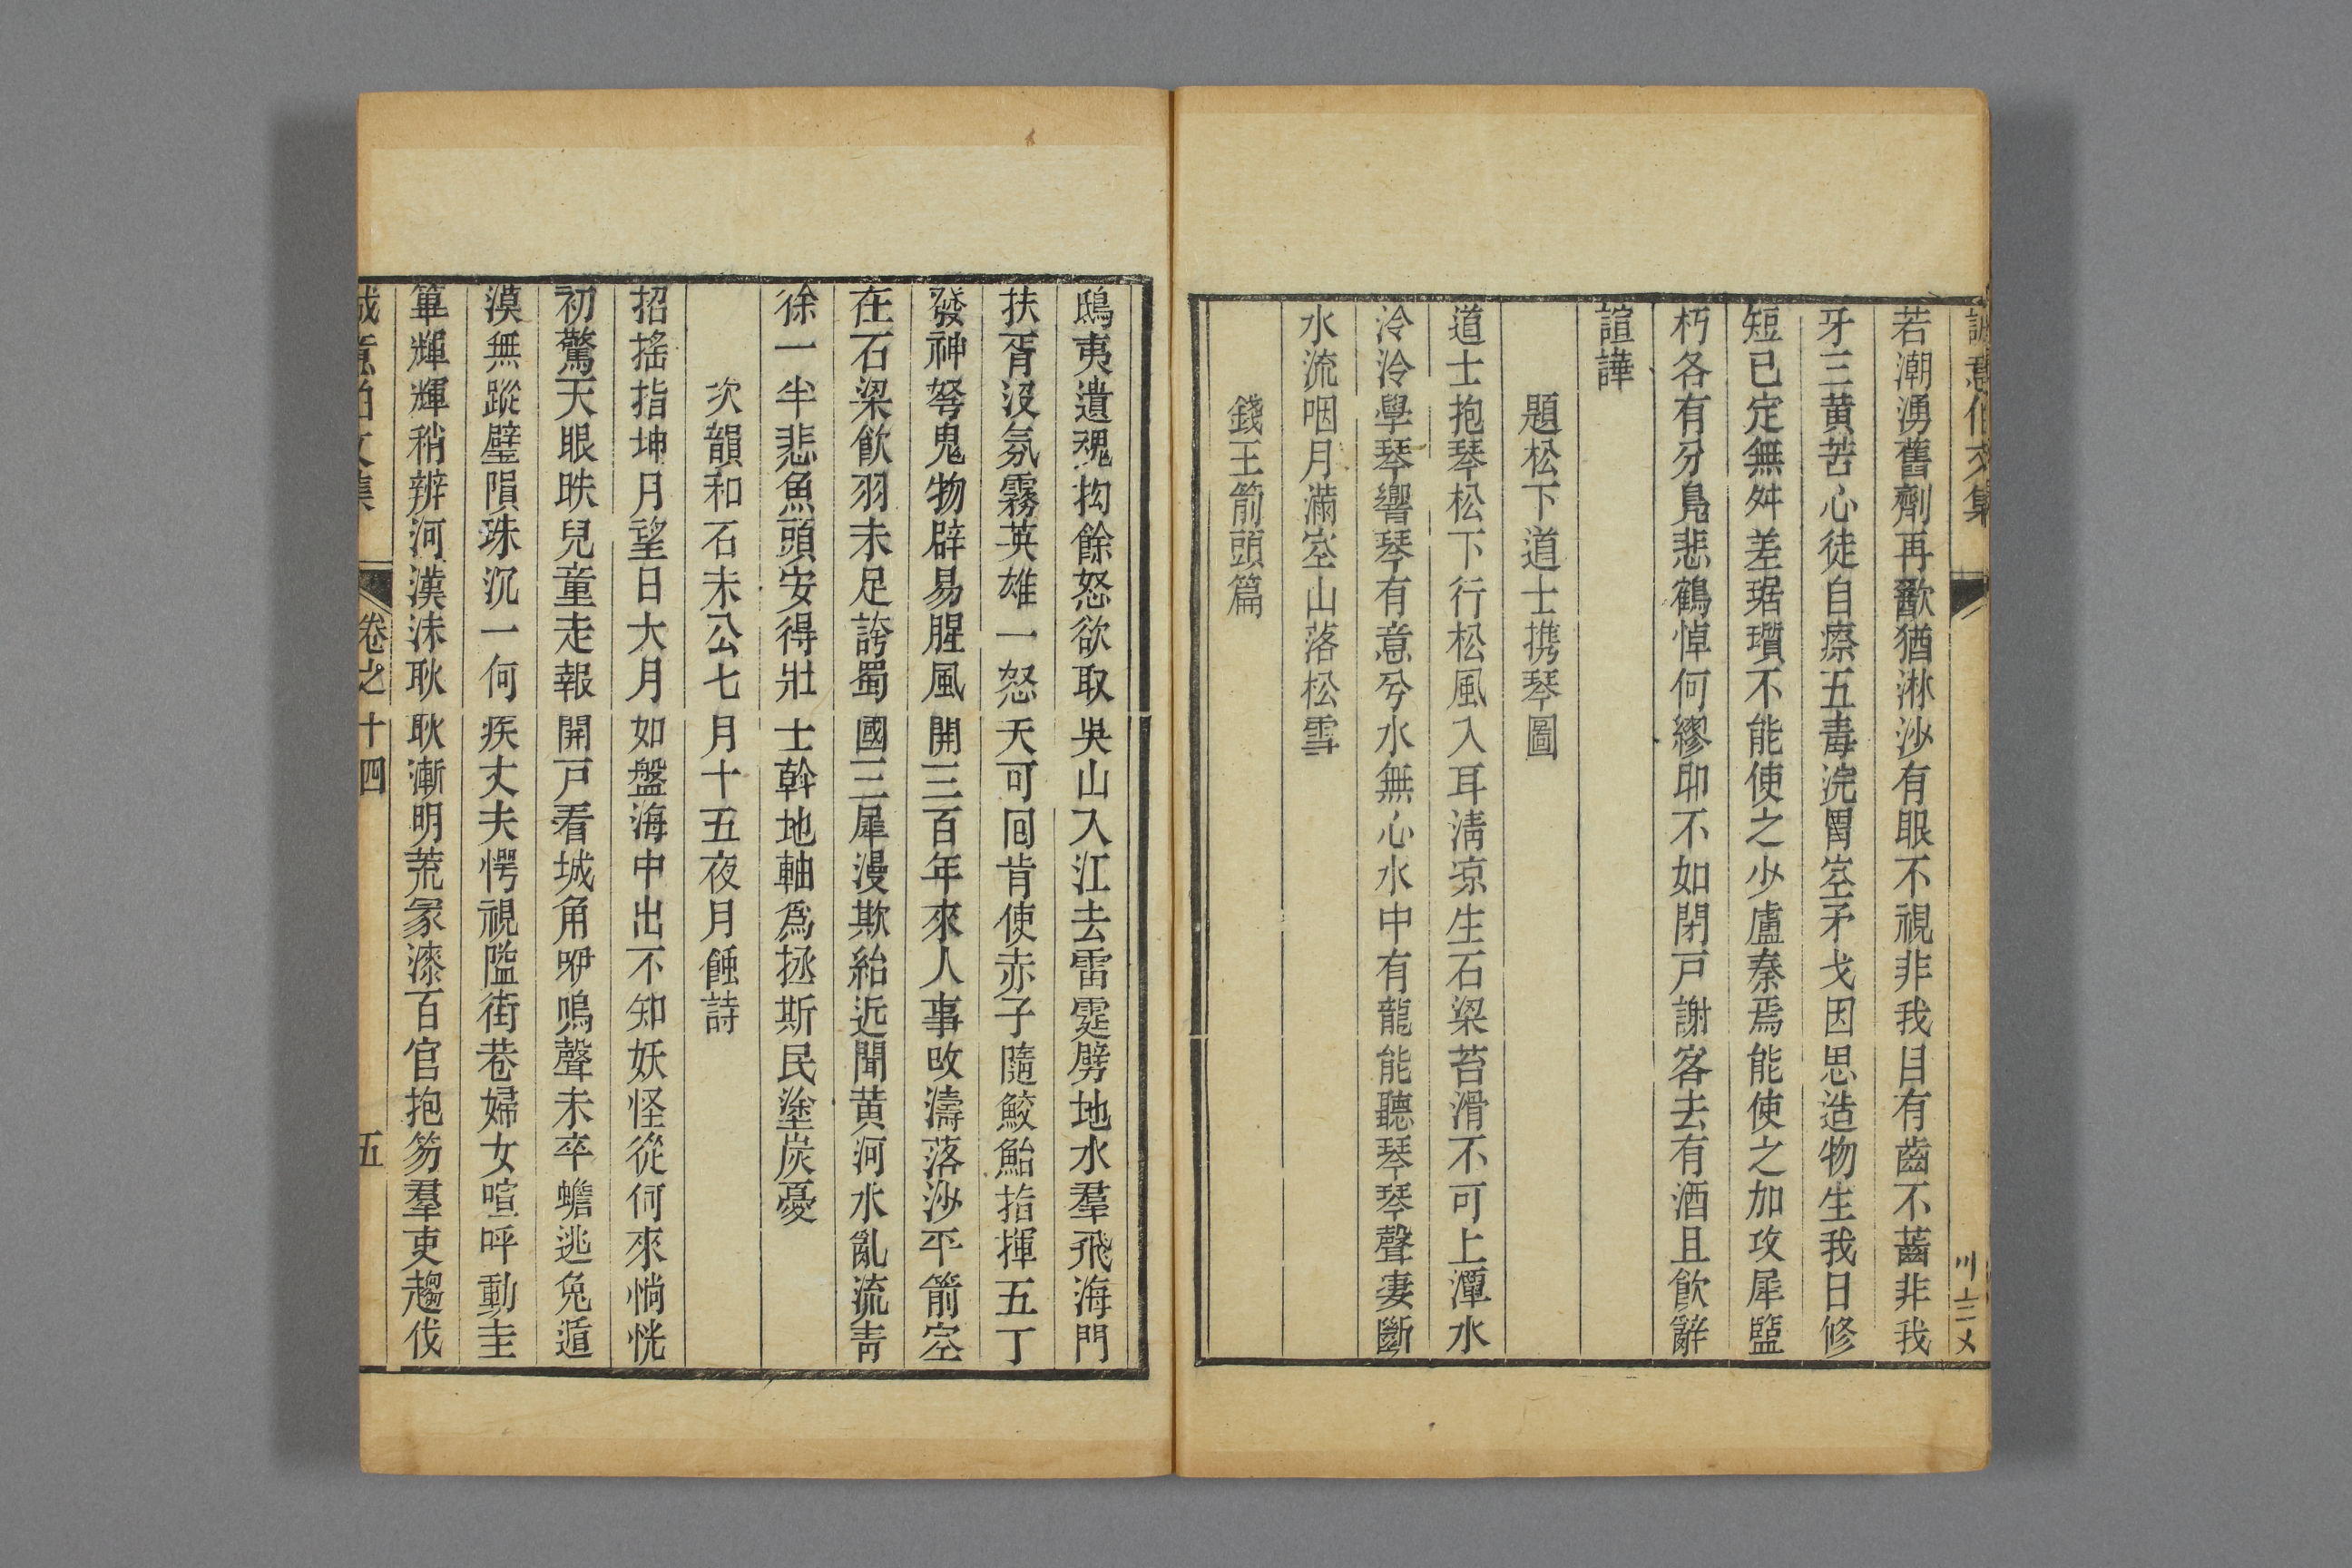 誠意伯文集
若潮湧舊劑再歠猶淋沙有眼不視非我目有齒不齧非我
牙三黄苦心徒自療五毒浣胃空矛戈因思造物生我日修
短已定無舛差琚瓚不能使之少盧秦焉能使之加攻犀盬
朽各有分鳬悲鶴悼何繆耶不如閉戸謝客去有酒且飮辭
諠譁
題松下道士携琴圖
道士抱琴松下行松風入耳淸凉生石梁苔滑不可上潭水
泠泠學琴響琴有意兮水無心水中有龍能聽琴琴聲凄斷
水流咽月滿空山落松雪
錢王箭頭篇
鴟夷遺魂抅餘怒欲取吳山入江去雷霆劈地水羣飛海門
扶胥没氛霧英雄一怒天可囘肯使赤子隨鮫鮐指揮五丁
發神弩鬼物辟易腥風開三百年來人事改濤落沙平箭空
在石梁飮羽未足誇蜀國三犀漫欺紿近聞黄河水亂流靑
徐一半悲魚頭安得壯士斡地軸爲拯斯民塗炭憂
次韻和石末公七月十五夜月蝕詩
招搖指坤月望日大月如盤海中出不知妖怪從何來惝恍
初驚天眼昳兒童走報開戸看城角咿嗚聲未卒蟾逃兔遁
漠無蹤璧隕珠沉一何疾丈夫愕視隘街巷婦女喧呼動圭
篳輝輝稍辨河漢沬耿耿漸明荒冢漆百官抱笏羣吏趨伐
誠意伯文集 卷之十四 五